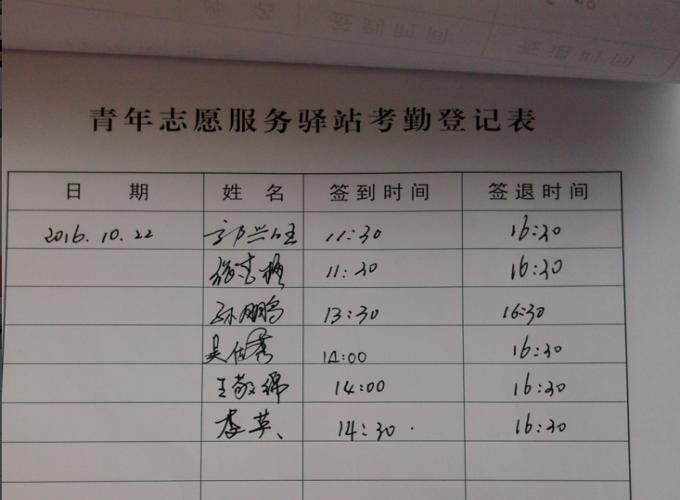 姓 名 签到时间 签退时间
青年志愿服务驿站考勤登记表
日 期 姓 名 签到时间 签退时间
2016.10.22 11:30 16:30
11:30 16:30
孙鹏鹏 13:30 16:30
14:00 16:30
王敬锦 14:00 16:30
李英 14:30 16:30